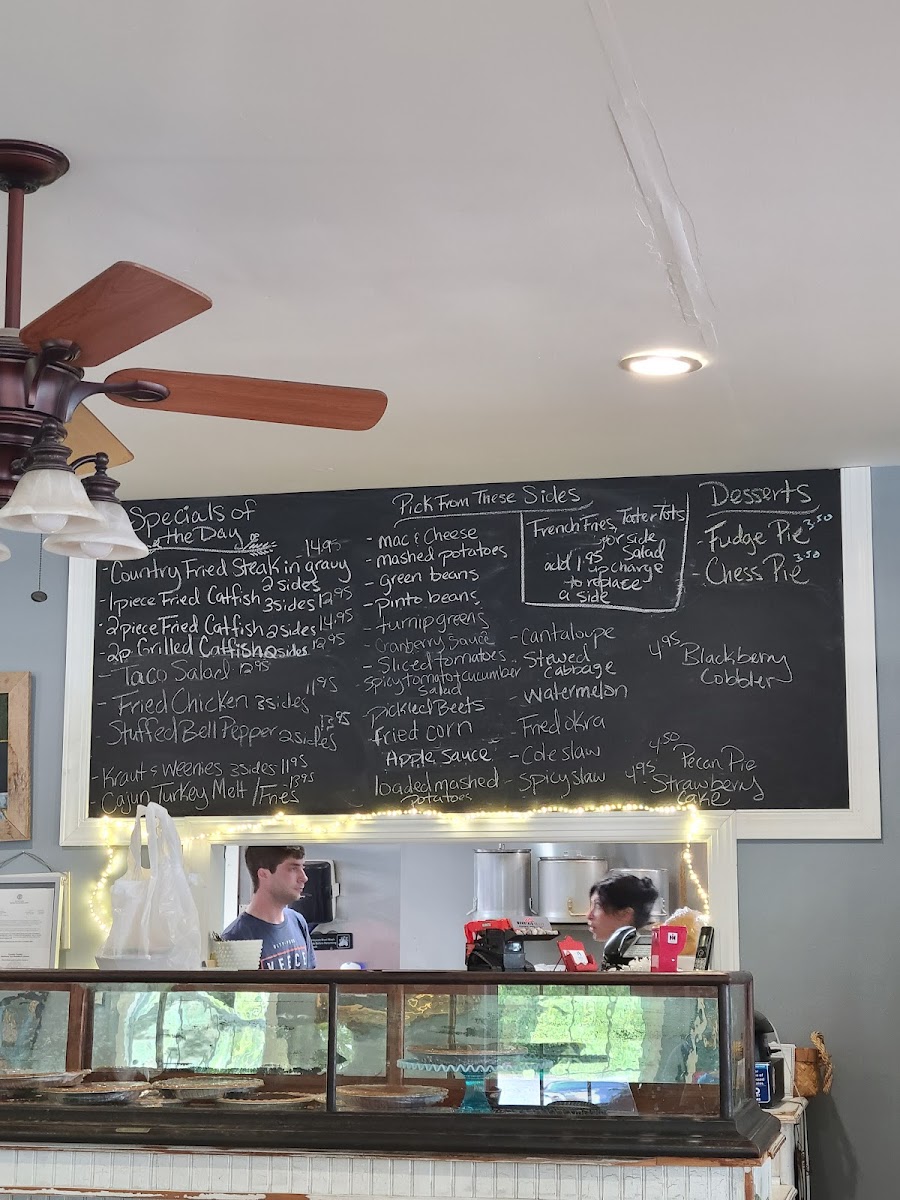 Specials of
the Day
14.95
-Country Fried Steak in gravy
2 sides
-1 piece Fried Catfish 3 sides 12.95
-2 piece Fried Catfish 2 sides 14.95
-2p Grilled Catfish 2 sides 12.95
-Taco Salad 12.95
-Fried Chicken 3 sides 11.95
-Stuffed Bell Pepper 2 sides 13.95
-Kraut & Weenies 3 sides 11.95
-Cajun Turkey Melt /Fries 13.95
Pick From These Sides
-mac & Cheese
-mashed potatoes
-green beans
-pinto beans
-turnip greens
-Cranberry Sauce
-Sliced tomatoes
-Spicy tomato + cucumber
Salad
-Pickled Beets
-fried corn
Apple Sauce
loaded mashed
potatoes
French Fries, Tater Tots
or side
Salad
add 1.95 upcharge
to replace
a side
-Cantaloupe
-Stewed
Cabbage
-Watermelon
-Fried okra
-Cole slaw
-Spicy slaw
Desserts
-Fudge Pie 3.50
-Chess Pie 3.50
4.95 Blackberry
Cobbler
4.50 Pecan Pie
4.95 Strawberry
Cake